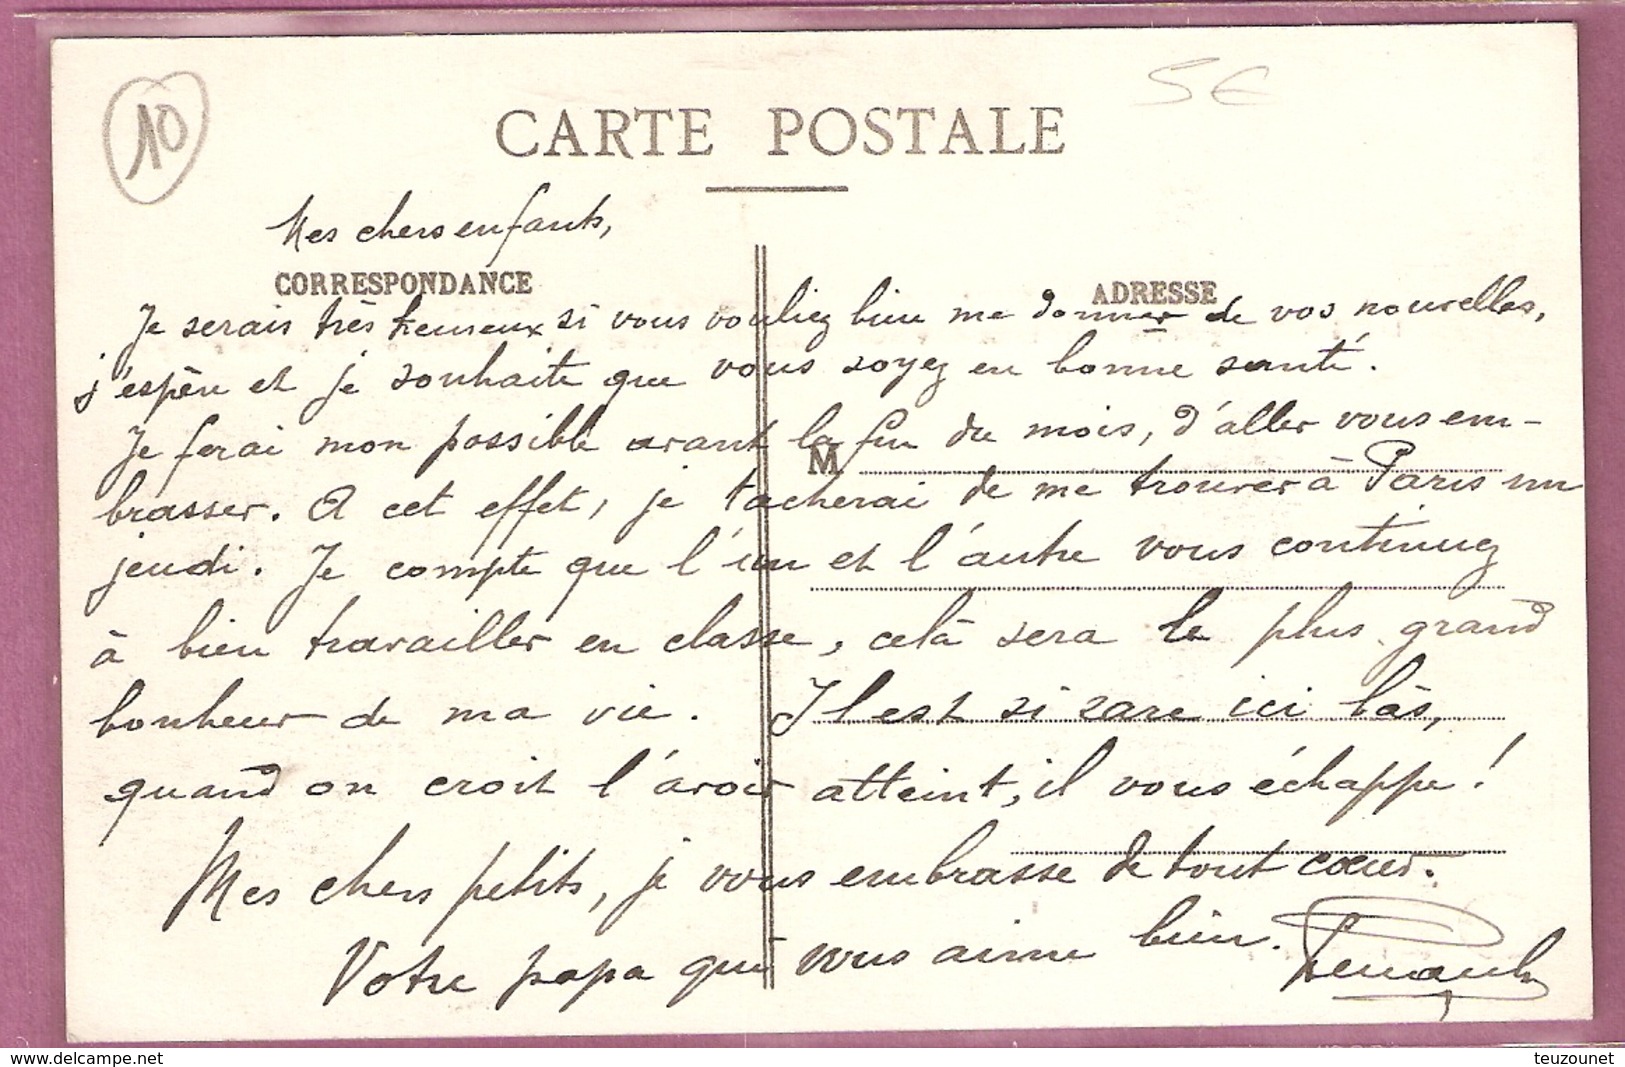 10
5€
CARTE POSTALE
Mes chers enfants,
CORRESPONDANCE
ADRESSE
Je serais très heureux si vous vouliez bien me donner de vos nouvelles,
j'espère et je souhaite que vous soyez en bonne santé.
Je ferai mon possible avant la fin du mois, d'aller vous em-
M
brasser. A cet effet, je tacherai de me trouver à Paris un
jeudi. Je compte que l'un et l'autre vous continuez
à bien travailler en classe, celà sera le plus grand
bonheur de ma vie. Il est si rare ici bàs,
quand on croit l'avoir atteint, il vous échappe!
Mes chers petits, je vous embrasse de tout cœur.
Votre papa qui vous aime bien.
delcampe.net
teuzounet